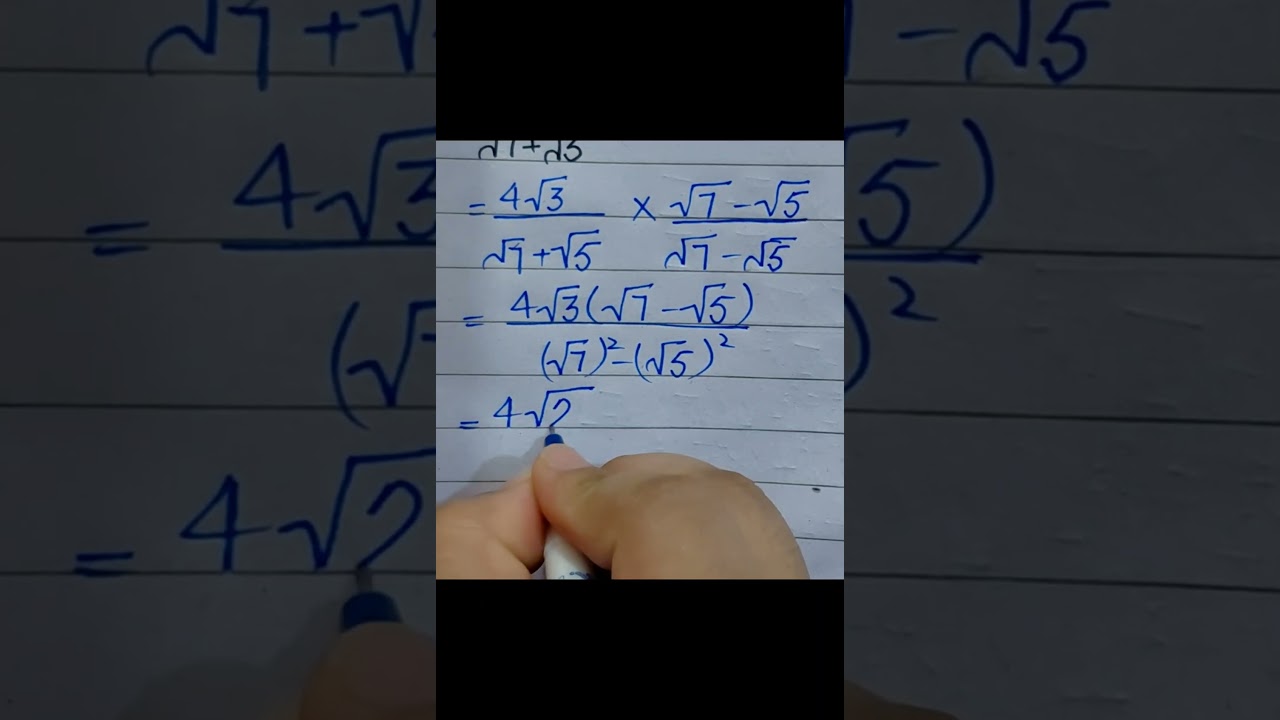 √7+√5
= 4√3 / √7+√5 × √7-√5 / √7-√5
= 4√3(√7-√5) / (√7)²-(√5)²
= 4√2